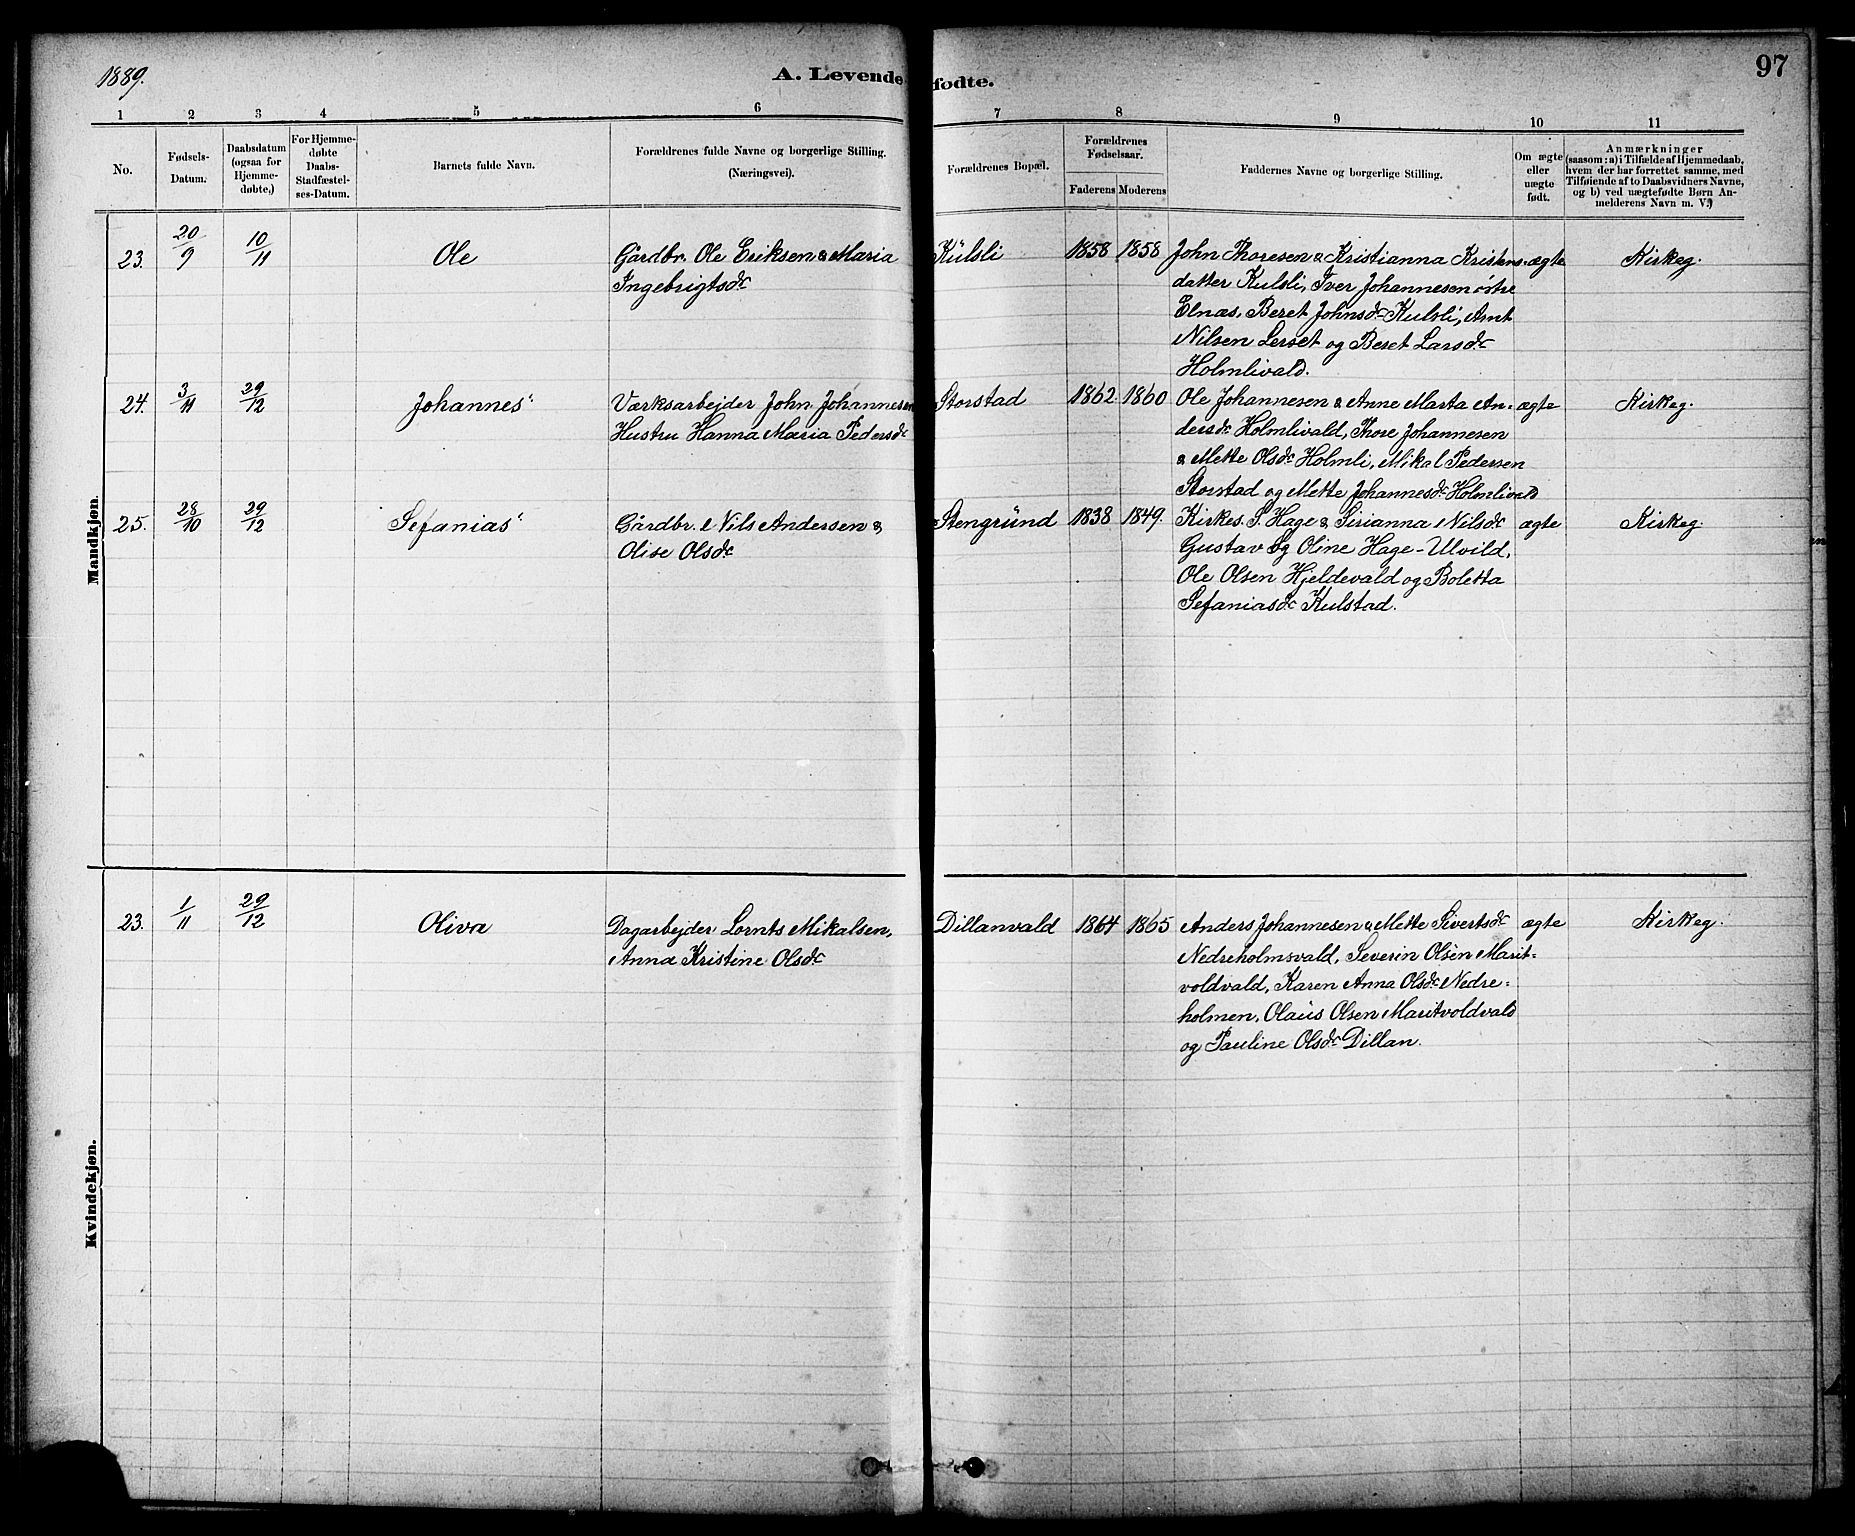 1889.
A. Levende fødte.
97
1 2 3 4 5 6 7 8 9 10 11
No.
Fødsels-
Datum.
Daabsdatum
(ogsaa for
Hjemme-
døbte,)
For Hjemme-
døbte
Daabs-
Stadfæstel-
ses-Datum.
Barnets fulde Navn.
Forældrenes fulde Navne og borgerlige Stilling.
(Næringsvei).
Forældrenes Bopæl.
Forældrenes
Fødselsaar.
Faderens Moderens
Faddernes Navne og borgerlige Stilling.
Om ægte
eller
uægte
født.
Anmærkninger
(saasom: a) i Tilfælde af Hjemmedaab,
hvem der har forrettet samme, med
Tilføiende af to Daabsvidners Navne,
og b) ved uægtefødte Børn An-
melderens Navn m. V.)
Mandkjøn.
23. 20/9 10/11 Ole
Gårdbr. Ole Eriksen & Maria
Ingebrigtsdr
Kulsli 1858 1858
John Thoresen & Kristianna Kristens-
datter Kulsli, Iver Johannesen østre
Elnæs, Beret Johnsdr Kulsli, Arnt
Nilsen Lerset og Beret Larsdr
Holmlivald.
ægte
Kirkeg.
24. 3/11 29/12 Johannes
Værksarbejder John Johannesen
Hustru Hanna Maria Pedersdr
Storstad 1862 1860
Ole Johannesen & Anne Marta An-
dersdr Holmlivald, Thore Johannesen
& Mette Olsdr Holmli, Mikal Pedersen
Storstad og Mette Johannesdr Holmlivald
ægte
Kirkeg.
25. 28/10 29/12 Sefanias
Gårdbr. Nils Andersen &
Olise Olsdr
Stengrund 1838 1849.
Kirkes. S. Hage & Sirianna Nilsdr
Gustav og Oline Hage-Ulvild,
Ole Olsen Hjeldevald og Boletta
Sefaniasdr Kulstad.
ægte
Kirkeg.
Kvindekjøn.
23. 1/11 29/12 Oliva
Dagarbejder Lornts Mikalsen,
Anna Kristine Olsdr
Dillanvald 1864 1865
Anders Johannesen & Mette Sivertsdr
Nedreholmsvald, Severin Olsen Marit-
voldvald, Karen Anna Olsdr Nedre-
holmen, Olaus Olsen Maritvoldvald
og Pauline Olsdr Dillan.
ægte
Kirkeg.